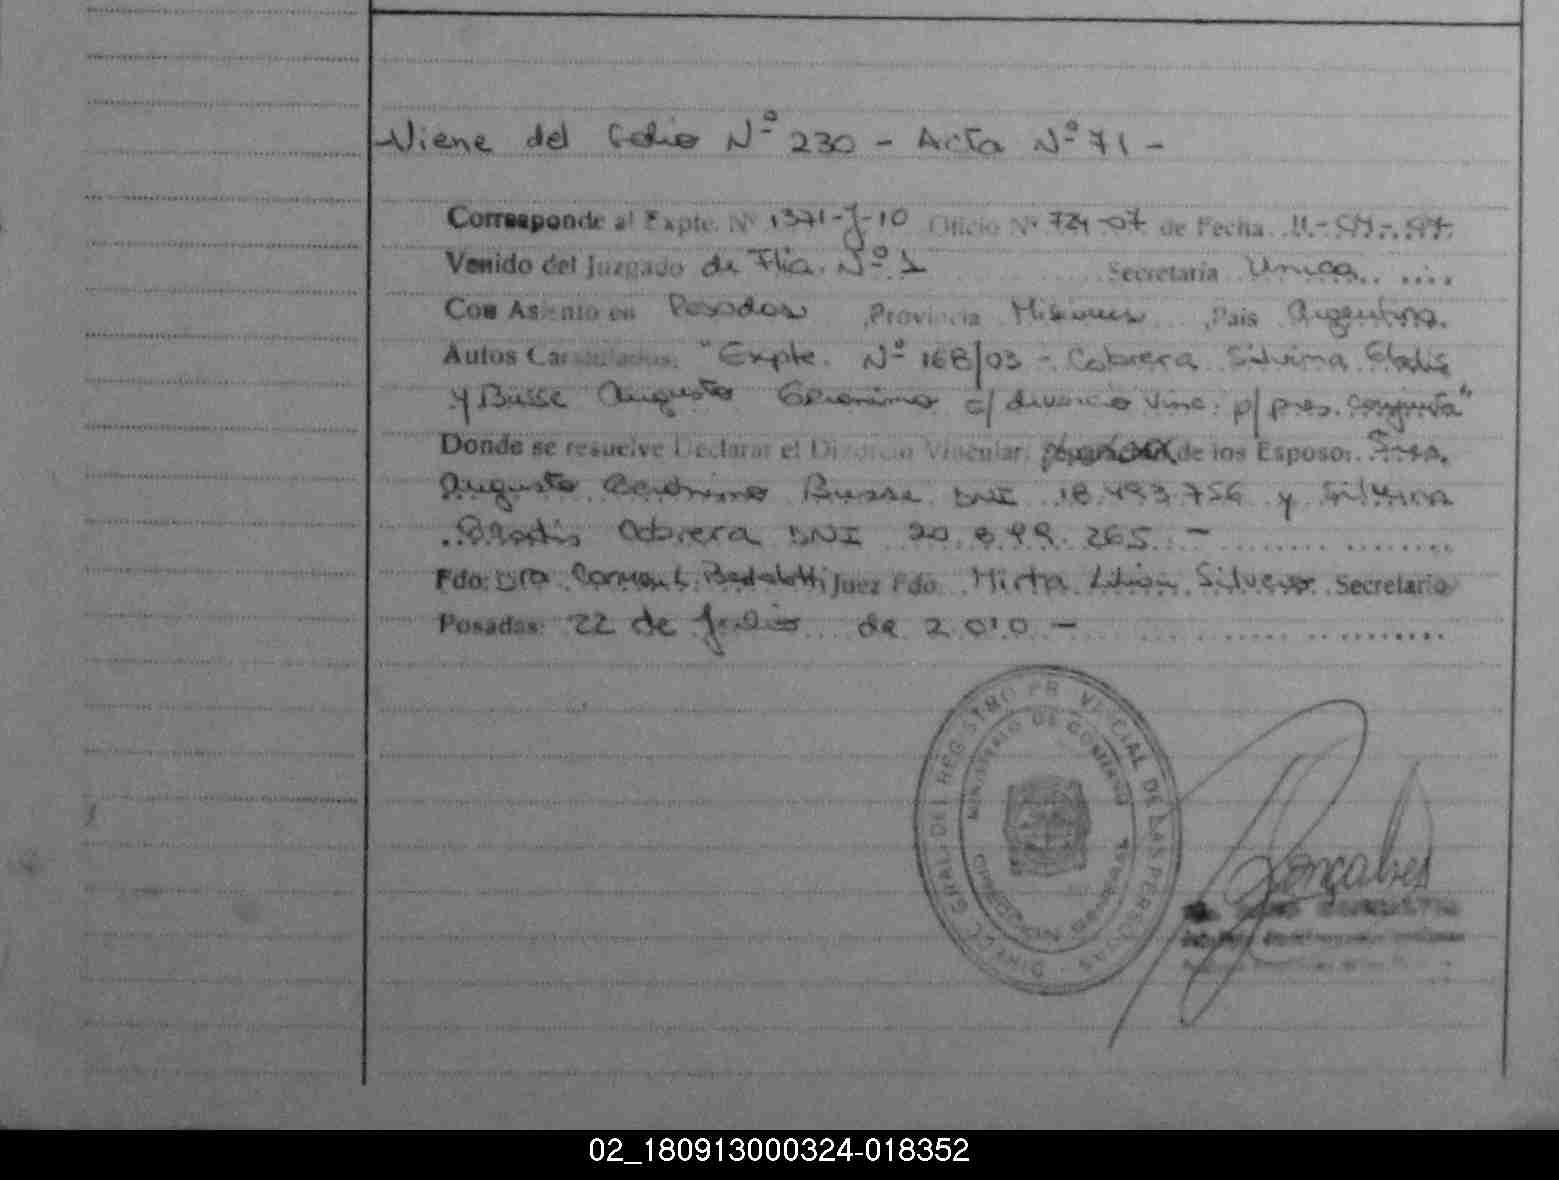 Viene del folio Nº 230 - Acta Nº 71 -
Corresponde al Expte. Nº 1371-J-10 Oficio Nº 724-07 de Fecha
Venido del Juzgado de Flia. Nº 1 Secretaría Unica
Con Asiento en Posadas Provincia Misiones País Argentina.
Autos Caratulados: "Expte. Nº 168/03 - Cabrera Silvina Gladis
y Busse Augusto Geronimo s/ divorcio Vinc. p/ pres. conjunta"
Donde se resuelve Declarar el Divorcio Vincular, de los Esposos
Augusto Geronimo Busse DNI 18.493.756 y Silvina
Gladis Cabrera DNI 20.899.265. -
Fdo: Dra. Carmen L. Juez Fdo. Mirta Silvero Secretaria
Posadas: 22 de Julio de 2.010 -
DIRECC. GRAL. DEL REGISTRO PROVINCIAL DE LAS PERSONAS
MINISTERIO DE GOBIERNO
MISIONES
02_180913000324-018352